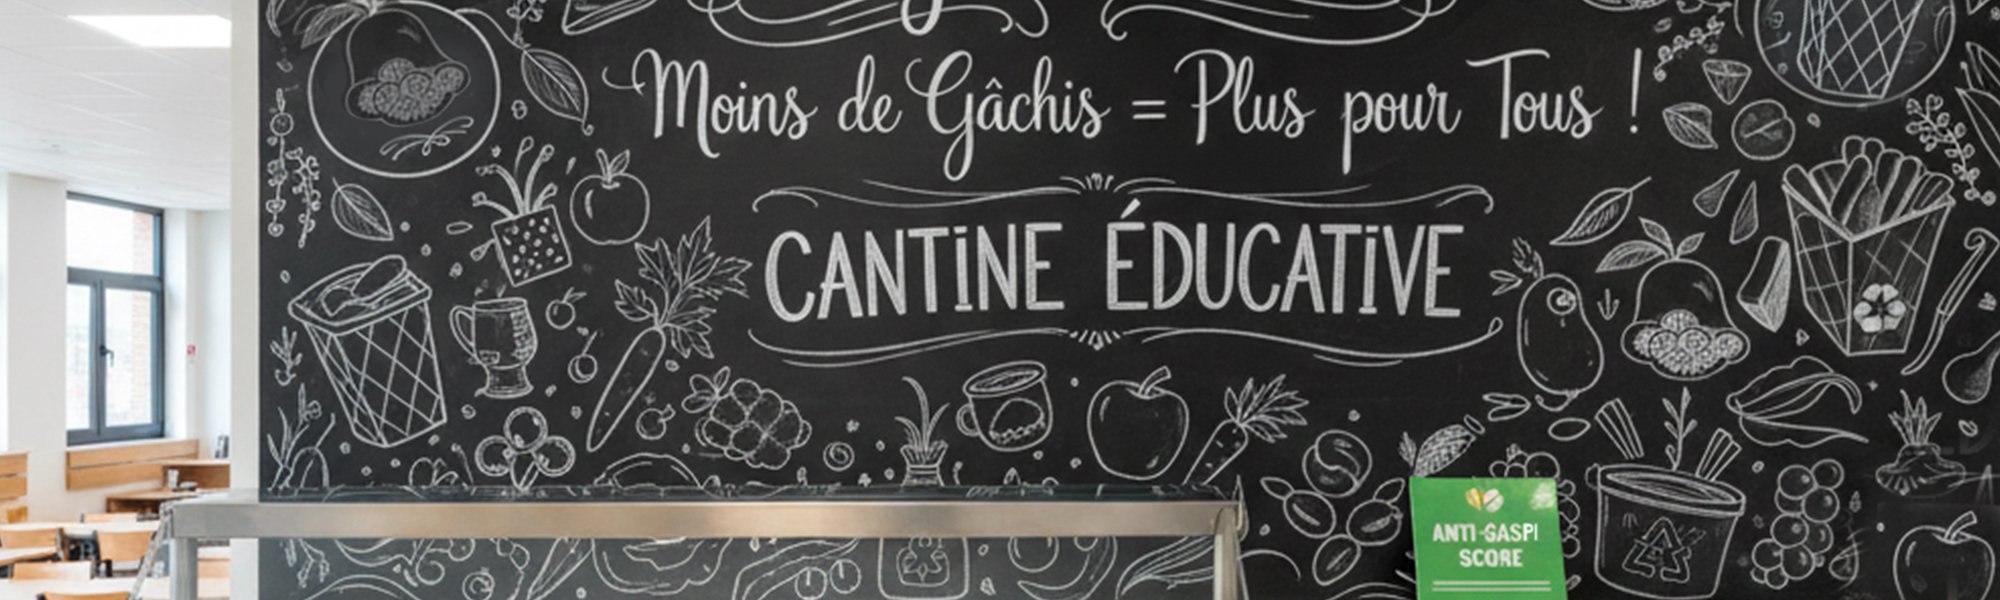 Moins de Gâchis = Plus pour Tous !
CANTINE ÉDUCATIVE
ANTI-GASPI
SCORE